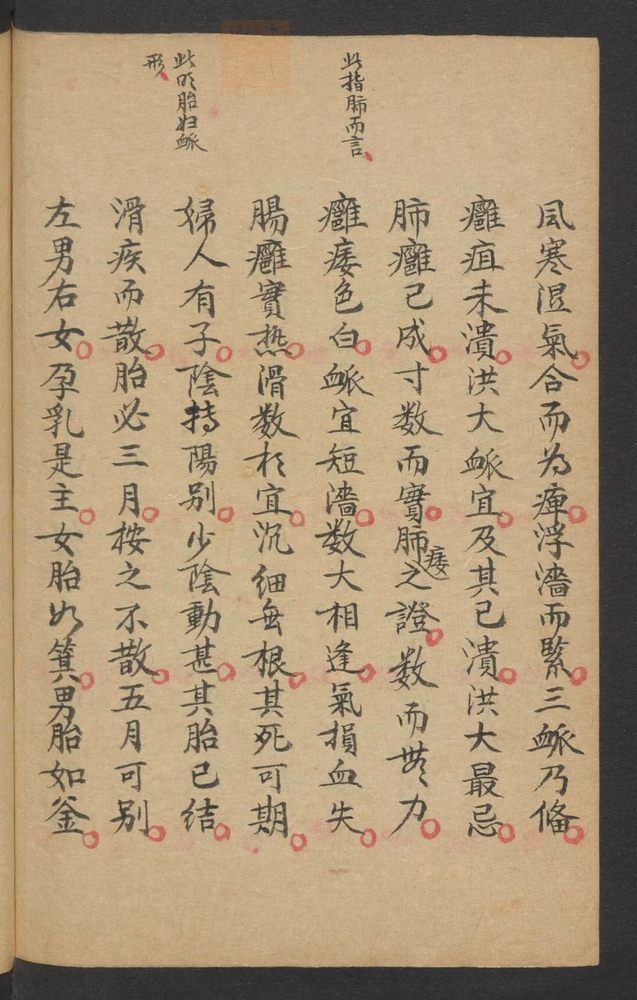 此指肺而言
此明胎妇脈
形
風寒湿氣合而为痺浮濇而緊三脈乃俻
癰疽未潰洪大脈宜及其已潰洪大最忌
肺癰已成寸数而實肺痿之證数而無力
癰痿色白脈宜短濇数大相逢氣損血失
腸癰實热滑数相宜沉细無根其死可期
婦人有子陰搏陽别少陰動甚其胎已结
滑疾而散胎必三月按之不散五月可别
左男右女孕乳是主女胎如箕男胎如釜